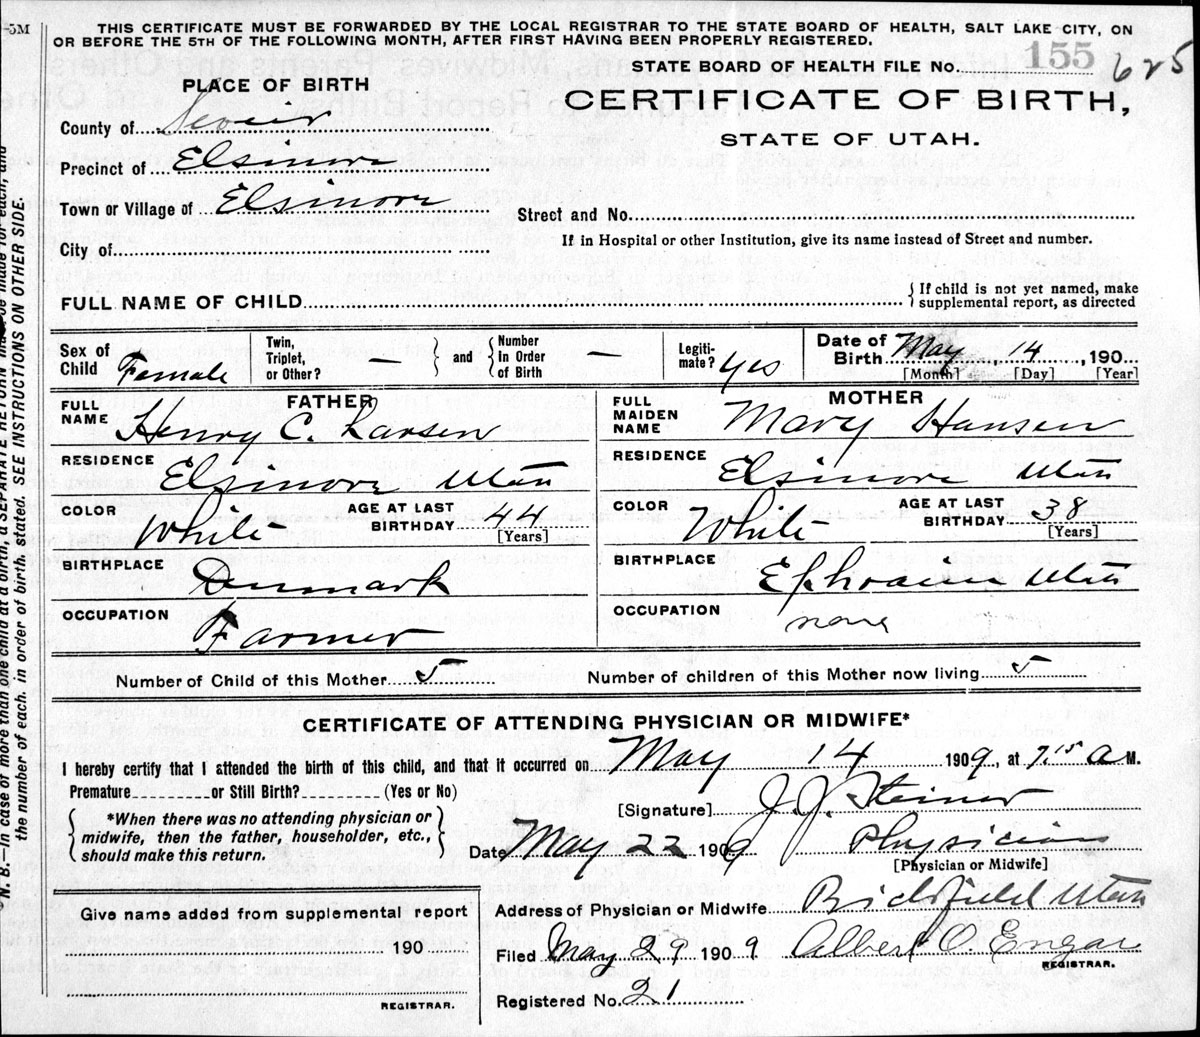 -5M
THIS CERTIFICATE MUST BE FORWARDED BY THE LOCAL REGISTRAR TO THE STATE BOARD OF HEALTH, SALT LAKE CITY, ON
OR BEFORE THE 5TH OF THE FOLLOWING MONTH, AFTER FIRST HAVING BEEN PROPERLY REGISTERED.
STATE BOARD OF HEALTH FILE NO. 155 625
PLACE OF BIRTH
CERTIFICATE OF BIRTH,
STATE OF UTAH.
County of Sevier
Precinct of Elsinore
Town or Village of Elsinore
Street and No.
City of
If in Hospital or other Institution, give its name instead of Street and number.
FULL NAME OF CHILD
{If child is not yet named, make
supplemental report, as directed
Sex of Child Female
Twin, Triplet, or Other? —
and
Number In Order of Birth —
Legiti-mate? Yes
Date of Birth May 14, 190
[Month] [Day] [Year]
FATHER
FULL NAME Henry C. Larsen
MOTHER
FULL MAIDEN NAME Mary Hansen
RESIDENCE Elsinore Utah
RESIDENCE Elsinore Utah
COLOR White AGE AT LAST BIRTHDAY 44 [Years]
COLOR White AGE AT LAST BIRTHDAY 38 [Years]
BIRTHPLACE Denmark
BIRTHPLACE Ephraim Utah
OCCUPATION Farmer
OCCUPATION none
Number of Child of this Mother 5 Number of children of this Mother now living 5
CERTIFICATE OF ATTENDING PHYSICIAN OR MIDWIFE*
I hereby certify that I attended the birth of this child, and that it occurred on May 14 1909, at 7.15 a M.
Premature or Still Birth? (Yes or No)
[Signature] J. J. Steiner
*When there was no attending physician or
midwife, then the father, householder, etc.,
should make this return.
Date May 22 1909 Physician
[Physician or Midwife]
Give name added from supplemental report
190
REGISTRAR.
Address of Physician or Midwife Richfield Utah
Filed May 29 1909 Albert O Engar
REGISTRAR.
Registered No. 21
N. B.—In case of more than one child at a birth, a SEPARATE RETURN must be made for each, and
the number of each, in order of birth, stated. SEE INSTRUCTIONS ON OTHER SIDE.